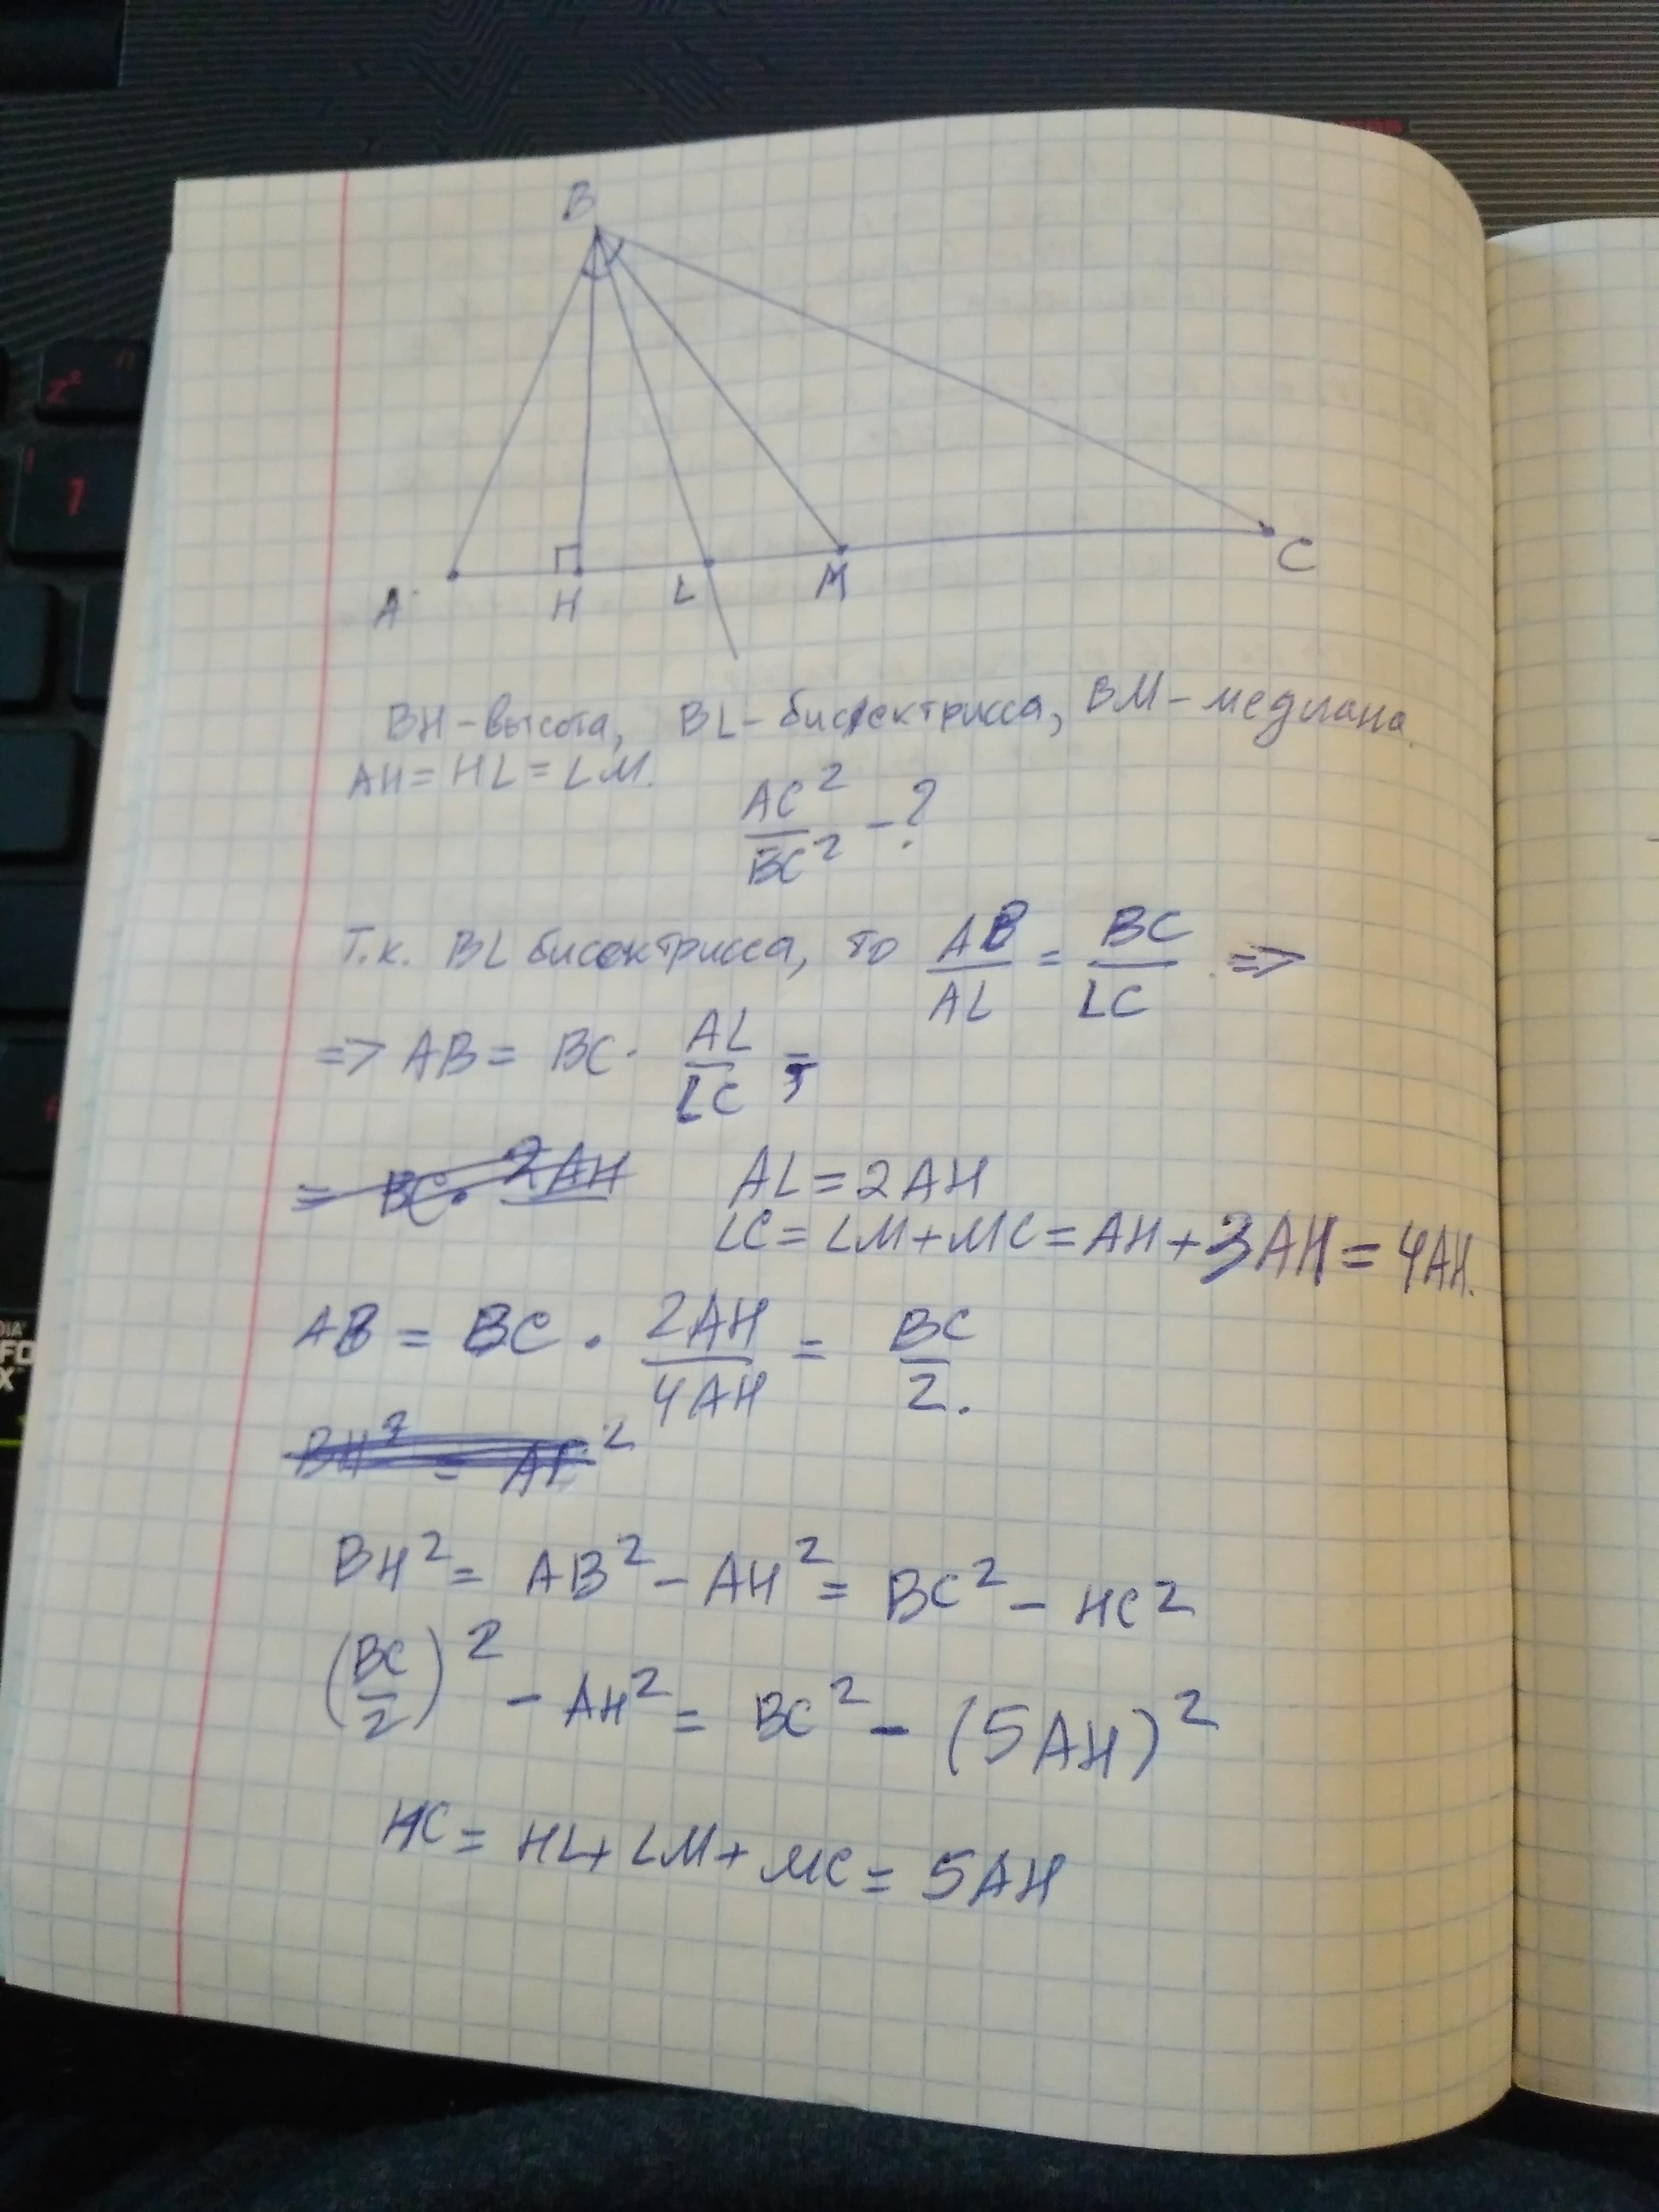 B
A H L M C
BH - высота, BL - бисектрисса, BM - медиана.
AH = HL = LM.
AC² / BC² - ?
Т.к. BL бисектрисса, то AB / AL = BC / LC =>
=> AB = BC · AL / LC =
= BC · 2AH AL = 2AH
LC = LM + MC = AH + 3AH = 4AH.
AB = BC · 2AH / 4AH = BC / 2.
BH² = AC²
BH² = AB² - AH² = BC² - HC²
(BC / 2)² - AH² = BC² - (5AH)²
HC = HL + LM + MC = 5AH